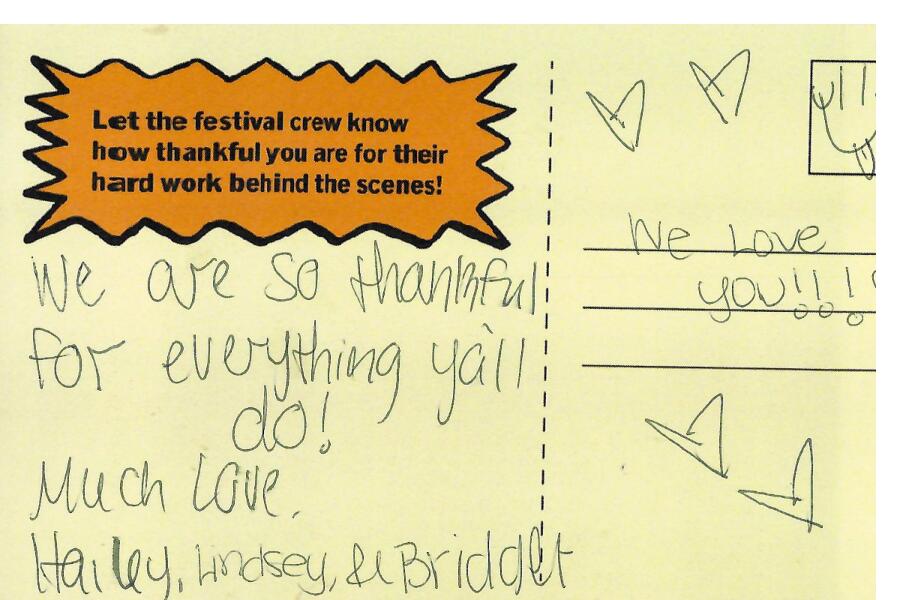 Let the festival crew know
how thankful you are for their
hard work behind the scenes!
We are so thankful
for everything ya'll
do!
Much Love,
Hailey, Lindsey, & Bridget
We Love
you!!!!